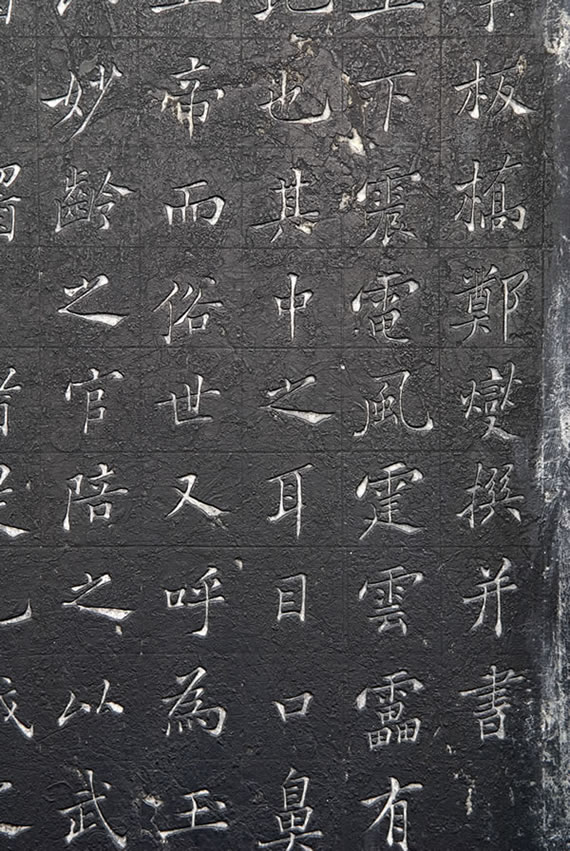 板橋鄭燮撰并書
下震電風霆雲靁有
也其中之耳目口鼻
帝而俗世又呼為玉
妙齡之官陪之以武